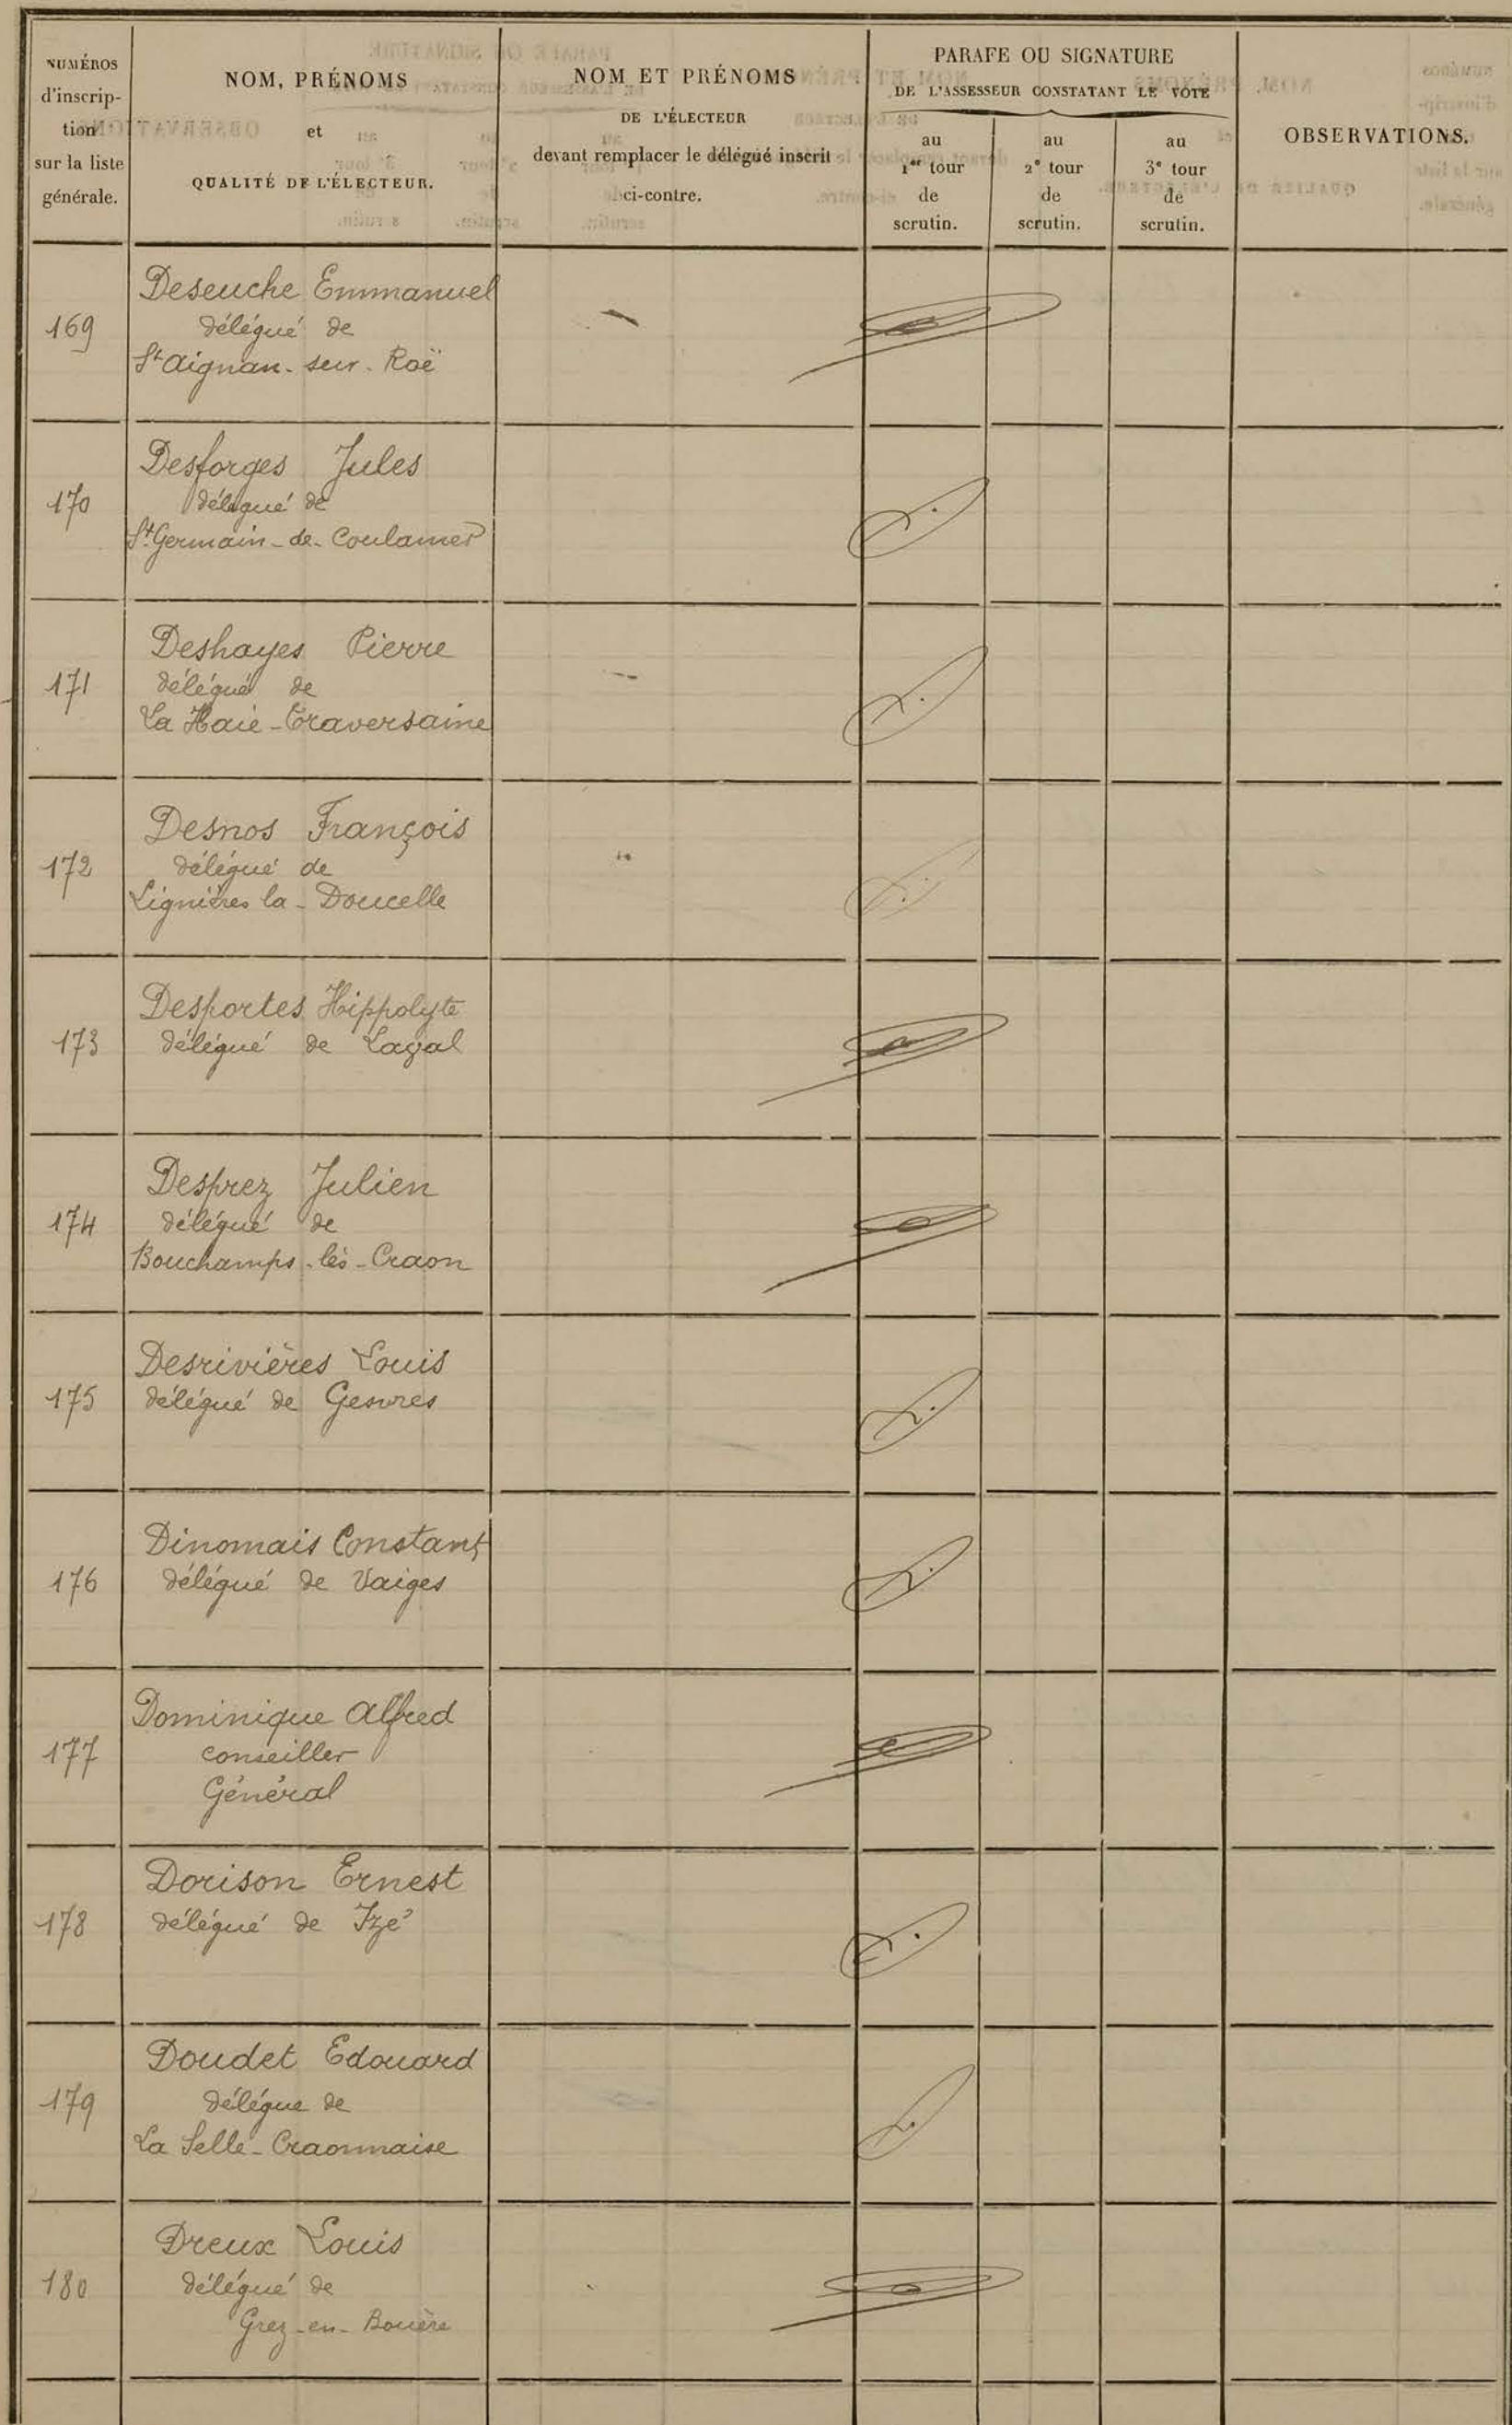 NUMÉROS
d'inscrip-
tion
sur la liste
générale.
NOM, PRÉNOMS
et
QUALITÉ DE L'ÉLECTEUR.
NOM ET PRÉNOMS
DE L'ÉLECTEUR
devant remplacer le délégué inscrit
ci-contre.
PARAFE OU SIGNATURE
DE L'ASSESSEUR CONSTATANT LE VOTE
au
1er tour
de
scrutin.
au
2e tour
de
scrutin.
au
3e tour
de
scrutin.
OBSERVATIONS.
169
Deseuche Emmanuel
délégué de
St Aignan-sur-Roë
170
Desforges Jules
délégué de
St Germain-de-Coulamer
171
Deshayes Pierre
délégué de
La Haie-Traversaine
172
Desnos François
délégué de
Lignières la-Doucelle
173
Desportes Hippolyte
délégué de Laval
174
Desprez Julien
délégué de
Bouchamps-lès-Craon
175
Desrivières Louis
délégué de Gesvres
176
Dinomais Constant
délégué de Vaiges
177
Dominique Alfred
conseiller
Général
178
Dorison Ernest
délégué de Izé
179
Doudet Edouard
délégué de
La Selle-Craonnaise
180
Dreux Louis
délégué de
Grez-en-Bouère